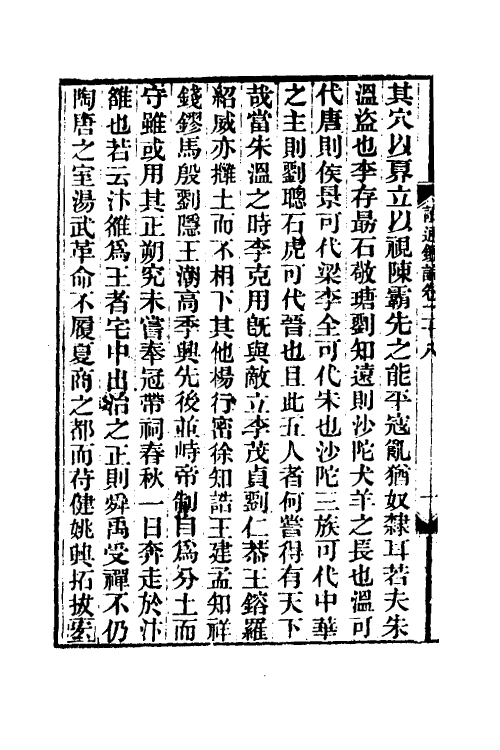 其穴以算立以視陳霸先之能平寇亂猶奴隸耳若夫朱
溫盜也李存勗石敬瑭劉知遠則沙陀犬羊之長也溫可
代唐則侯景可代梁李全可代宋也沙陀三族可代中華
之主則劉聰石虎可代晉也且此五人者何嘗得有天下
哉當朱溫之時李克用旣與敵立李茂貞劉仁恭王鎔羅
紹威亦擁土而不相下其他楊行密徐知誥王建孟知祥
錢鏐馬殷劉隱王潮高季興先後並峙帝制自爲分土而
守雖或用其正朔究未嘗奉冠帶祠春秋一日奔走於汴
雒也若云汴雒爲王者宅中出治之正則舜禹受禪不仍
陶唐之室湯武革命不履夏商之都而苻健姚興拓拔宏
讀通鑑論卷二十八
一